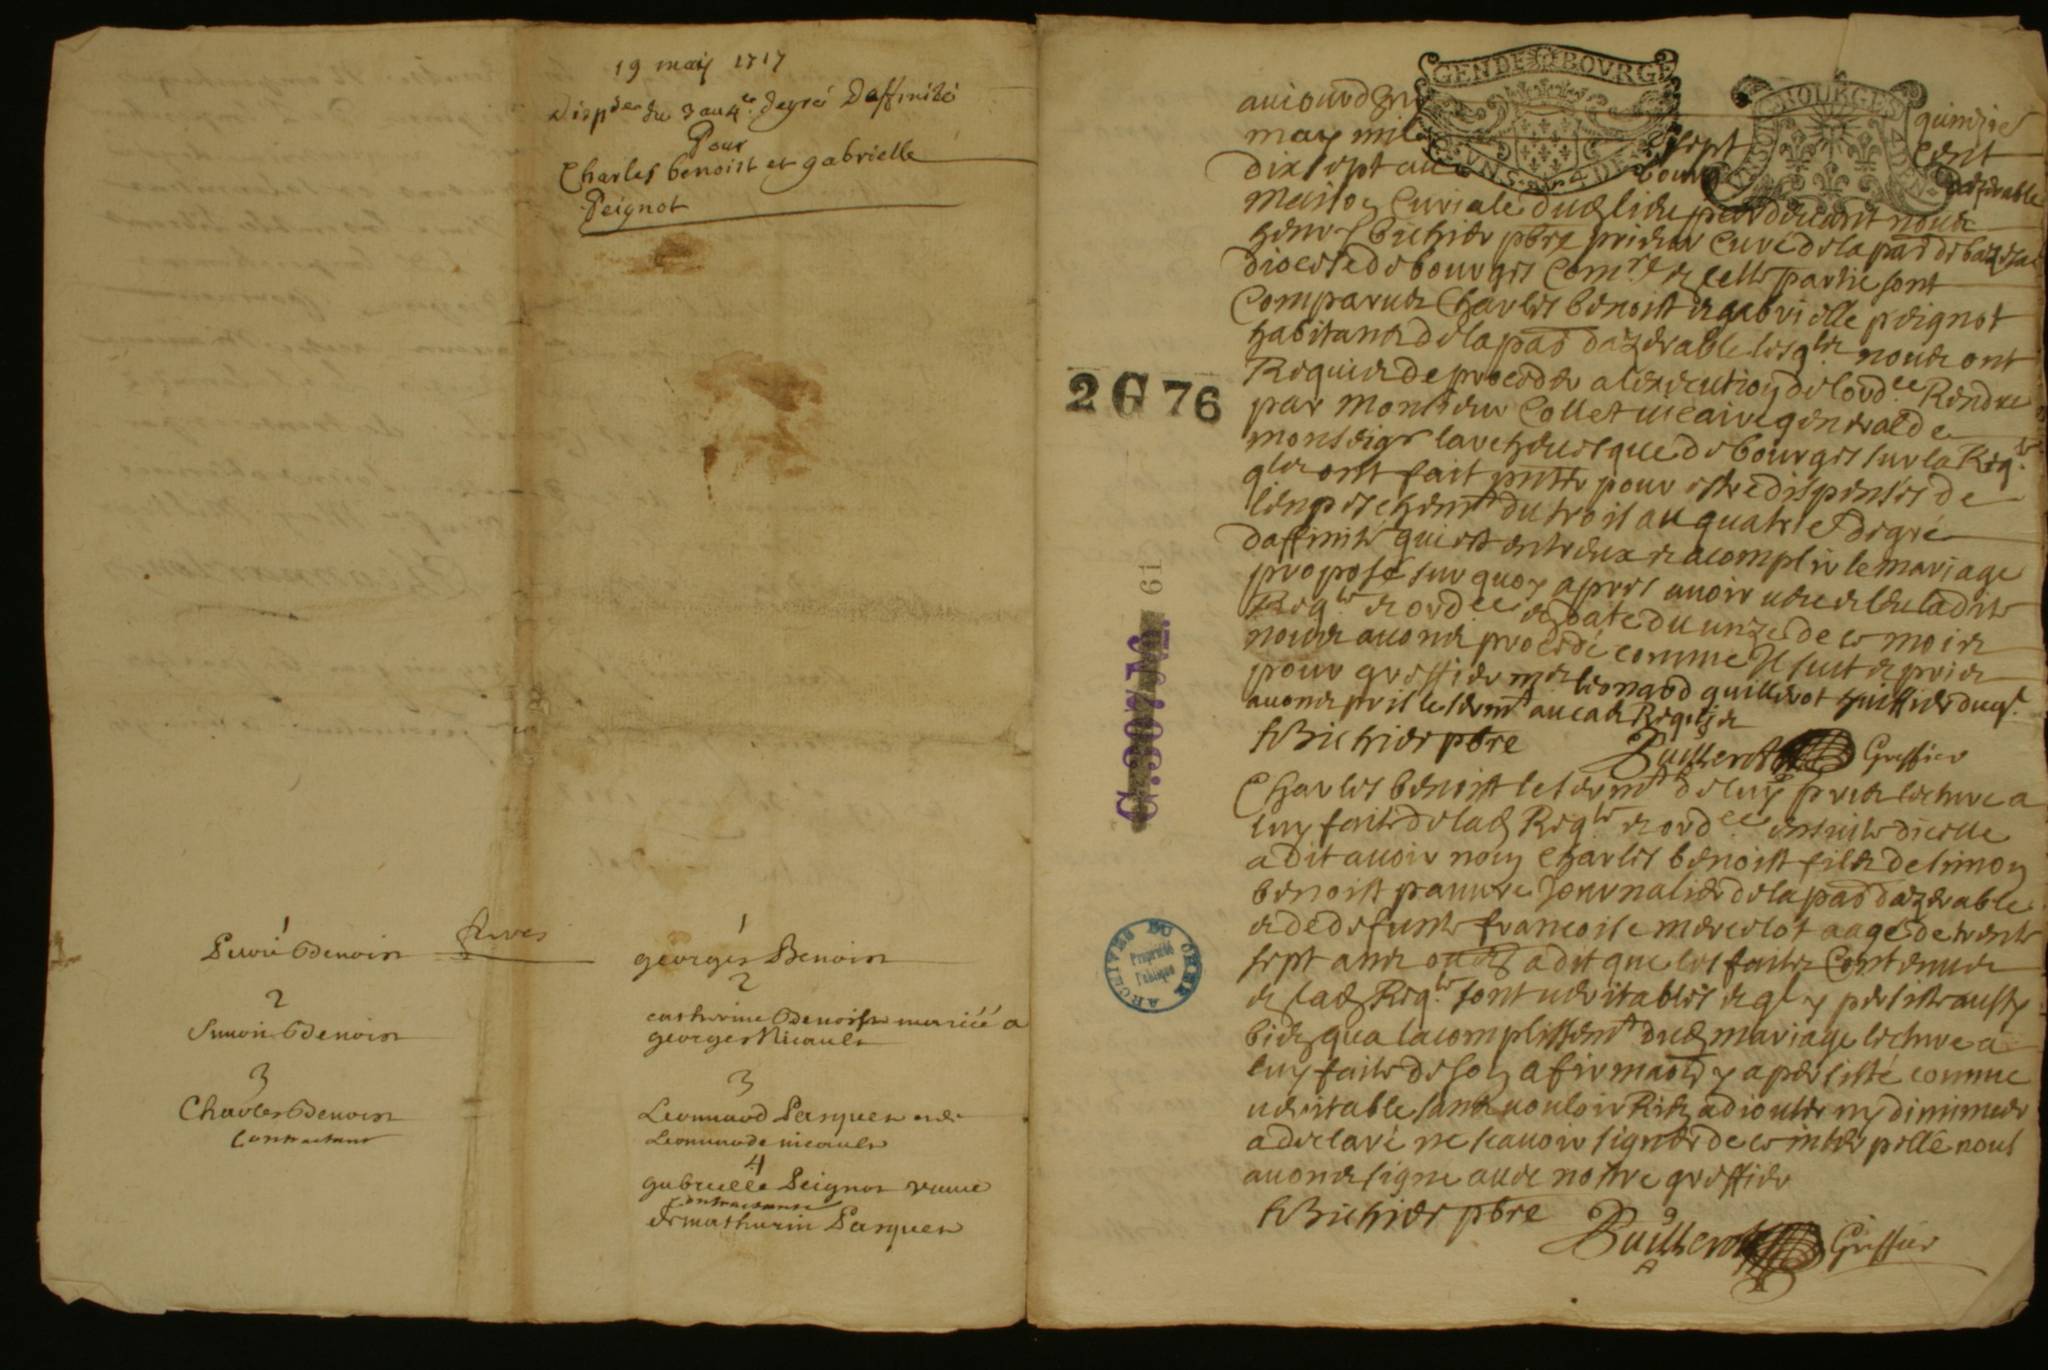 19 may 1717
Disp^en du 3 au 4^e degré Daffinité
Pour
Charles benoist et gabrielle
Peignot
freres
1
Pierre Benoin
2
Simon Benoin
3
Charles Benoin
Contractant
1
georges Benoin
2
catherine Benoist mariée a
georges Nicault
3
Leonnard Pasquet et de
Leonnarde nicault
4
gabrielle Peignot veuve
contractante
de mathurin Pasquet
GEN DE BOVRGE
BOURGES
2 G 76
G. 307 M. 61
ARCHIVES DU CHER
Propriété
Publique
aujourdhuy quinzie
may mil sept cent
dix sept au bourg dazerable
maison Curiale dud lieu pardevant nous
henry bichier pbre prieur Curé de la pad de bazelat
diocese de bourges Com^re en celle partie sont
Comparus Charles benoist et gabrielle peignot
habitants de la pad dazerable lesq^ls nous ont
Requis de proceder a lexecution de lord^ce Rendue
par monsieur Collet vicaire general de
monseig^r larcheuesque de bourges sur la Req^te
q^ls ont fait pnter pour estre dispensés de
lenpeschem^t du trois au quatrie degré
daffinité qui est entreux et acomplir le mariage
proposé sur quoy apres auoir veu et leu ladite
Req^te et ord^ce en date du unze de ce mois
nous auons procedé comme Il suit et pris
pour greffier m^e leonard guillerot huissier duq^l
auons pris le serm^t au cas Requis
h Bichier pbre
Guillerot Greffier
Charles benoist le serm^t de luy pris lecture a
luy faite de lad Req^te et ord^ce ensuite dicelle
a dit auoir nom Charles benoist fils de simon
benoist pauure Journalier de la pad dazerable
et de defunte francoise mercelot aagé de trente
sept ans ou a dit que les faits Contenus
en lad Req^te sont veritables et q^l y persiste aussy
bien qua lacomplissem^t dud mariage lecture a
luy faite de son afirmaon y a persisté comme
veritable sans vouloir Rien adiouter ny diminuer
a declaré ne scauoir signer de ce interpellé nous
auons signe auec nostre greffier
h Bichier pbre
Guillerot Greffier